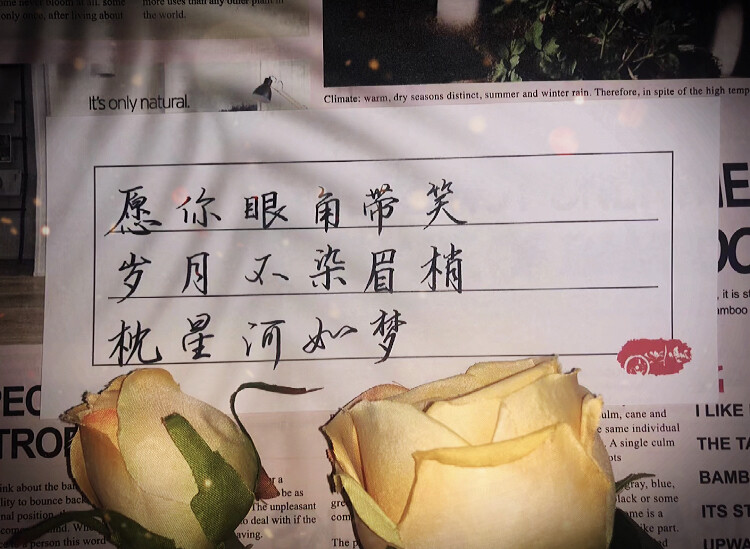 more uses than any other plant in
only once, after living about
the world.
It's only natural.
Climate: warm, dry seasons distinct, summer and winter rain. Therefore, in spite of the high temp
愿你眼角带笑
岁月不染眉梢
枕星河如梦
it is st
amboo
I LIKE
THE TA
BAMB
ITS ST
UPWA
ulm, cane and
same individual
A single culm
gray, blue,
black or some
ome is a
like part.
ink about the bam
ility to bounce back
nal position,
a person this word
be as
The unpleasant
to deal with if the
aving.
The p